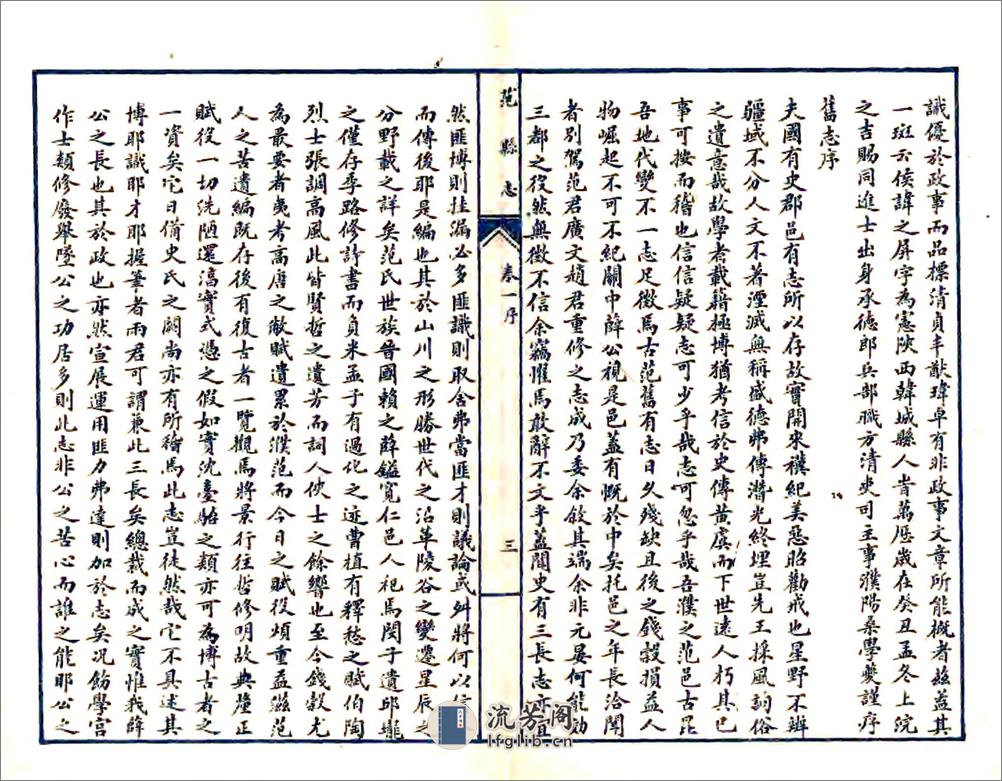 識優於政事而品標清貞丰猷瑋卓有非政事文章所能概者茲蓋其
一斑云侯諱之屏字為憲陝西韓城縣人旹萬曆歲在癸丑孟冬上浣
之吉賜同進士出身承德郎兵部職方清吏司主事濮陽桑學夔謹序
舊志序
夫國有史郡邑有志所以存故實開來禩紀美惡昭勸戒也星野不辨
疆域不分人文不著湮滅無稱盛德弗傳潛光終埋豈先王採風詢俗
之遺意哉故學者載籍極博猶考信於史傳黃虞而下世遠人朽其已
事可按而稽也信信疑疑志可少乎哉志可忽乎哉吾濮之范邑古昆
吾地代變不一志足徵焉古范舊有志日久殘缺且後之錢穀損益人
物崛起不可不紀關中薛公視是邑蓋有慨於中矣托邑之年長洽聞
者別駕范君廣文趙君重修之志成乃委余敘其端余非元晏何能効
三都之役然無徵不信余竊懼焉敢辭不文乎蓋聞史有三長志亦宜
范縣志
卷一序
三
然匪博則挂漏必多匪識則取舍弗當匪才則議論或舛將何以信
而傳後耶是編也其於山川之形勝世代之沿革陵谷之變遷星辰之
分野載之詳矣范氏世族晉國賴之薛鎰寬仁邑人祀焉閔子遺邱壠
之僅存季路修詩書而負米孟子有過化之迹曹植有釋愁之賦伯陶
烈士張調高風此皆賢哲之遺芳而詞人俠士之餘響也至今錢穀尤
為最要者曵考高唐之敝賦遺累於濮范而今日之賦役煩重益滋范
人之苦遺編既存後有復古者一覽觀焉將景行往哲修明故典釐正
賦役一切洗陋還淳實式憑之假如實沈臺駘之類亦可為博古者之
一資矣它日備史氏之闕尚亦有所稽焉此志豈徒然哉它不具述其
博耶識耶才耶握筆者兩君可謂兼此三長矣總裁而成之實惟我薛
公之長也其於政也亦然宣展運用匪力弗達則加於志矣况飭學宮
作士類修廢舉墜公之功居多則此志非公之苦心而誰之能耶公之
流芳阁
lfglib.cn